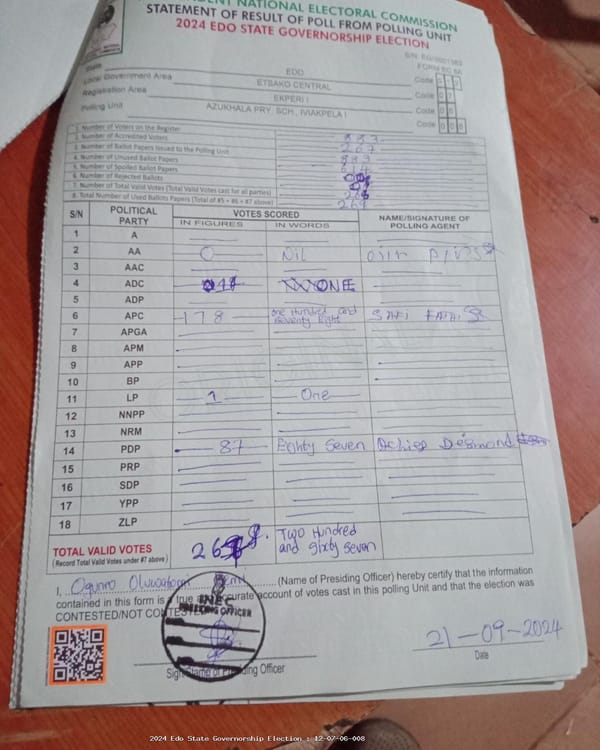 NATIONAL ELECTORAL COMMISSION
STATEMENT OF RESULT OF POLL FROM POLLING UNIT
2024 EDO STATE GOVERNORSHIP ELECTION
State EDO Code
Local Government Area ETSAKO CENTRAL Code
Registration Area EKPERI I Code
Polling Unit AZUKHALA PRY. SCH., IVIAKPELA I Code
1. Number of Voters on the Register 883
2. Number of Accredited Voters 267
3. Number of Ballot Papers Issued to the Polling Unit 883
4. Number of Unused Ballot Papers
5. Number of Spoiled Ballot Papers
6. Number of Rejected Ballots
7. Number of Total Valid Votes (Total Valid Votes cast for all parties)
8. Total Number of Used Ballot Papers (Total of #5 + #6 + #7 above)
S/N POLITICAL PARTY VOTES SCORED NAME/SIGNATURE OF POLLING AGENT
IN FIGURES IN WORDS
1 A
2 AA 0 Nil
3 AAC
4 ADC ONE
5 ADP
6 APC 178 one Hundred and Seventy Eight
7 APGA
8 APM
9 APP
10 BP
11 LP 1 One
12 NNPP
13 NRM
14 PDP 87 Eighty Seven Desmond
15 PRP
16 SDP
17 YPP
18 ZLP
TOTAL VALID VOTES Two Hundred and Sixty Seven
(Record Total Valid Votes under #7 above)
I, (Name of Presiding Officer) hereby certify that the information
contained in this form is a true accurate account of votes cast in this polling Unit and that the election was
CONTESTED/NOT CONTESTED
INEC
PRESIDING OFFICER
21-09-2024
Date
Presiding Officer
2024 Edo State Governorship Election : 12-07-06-008